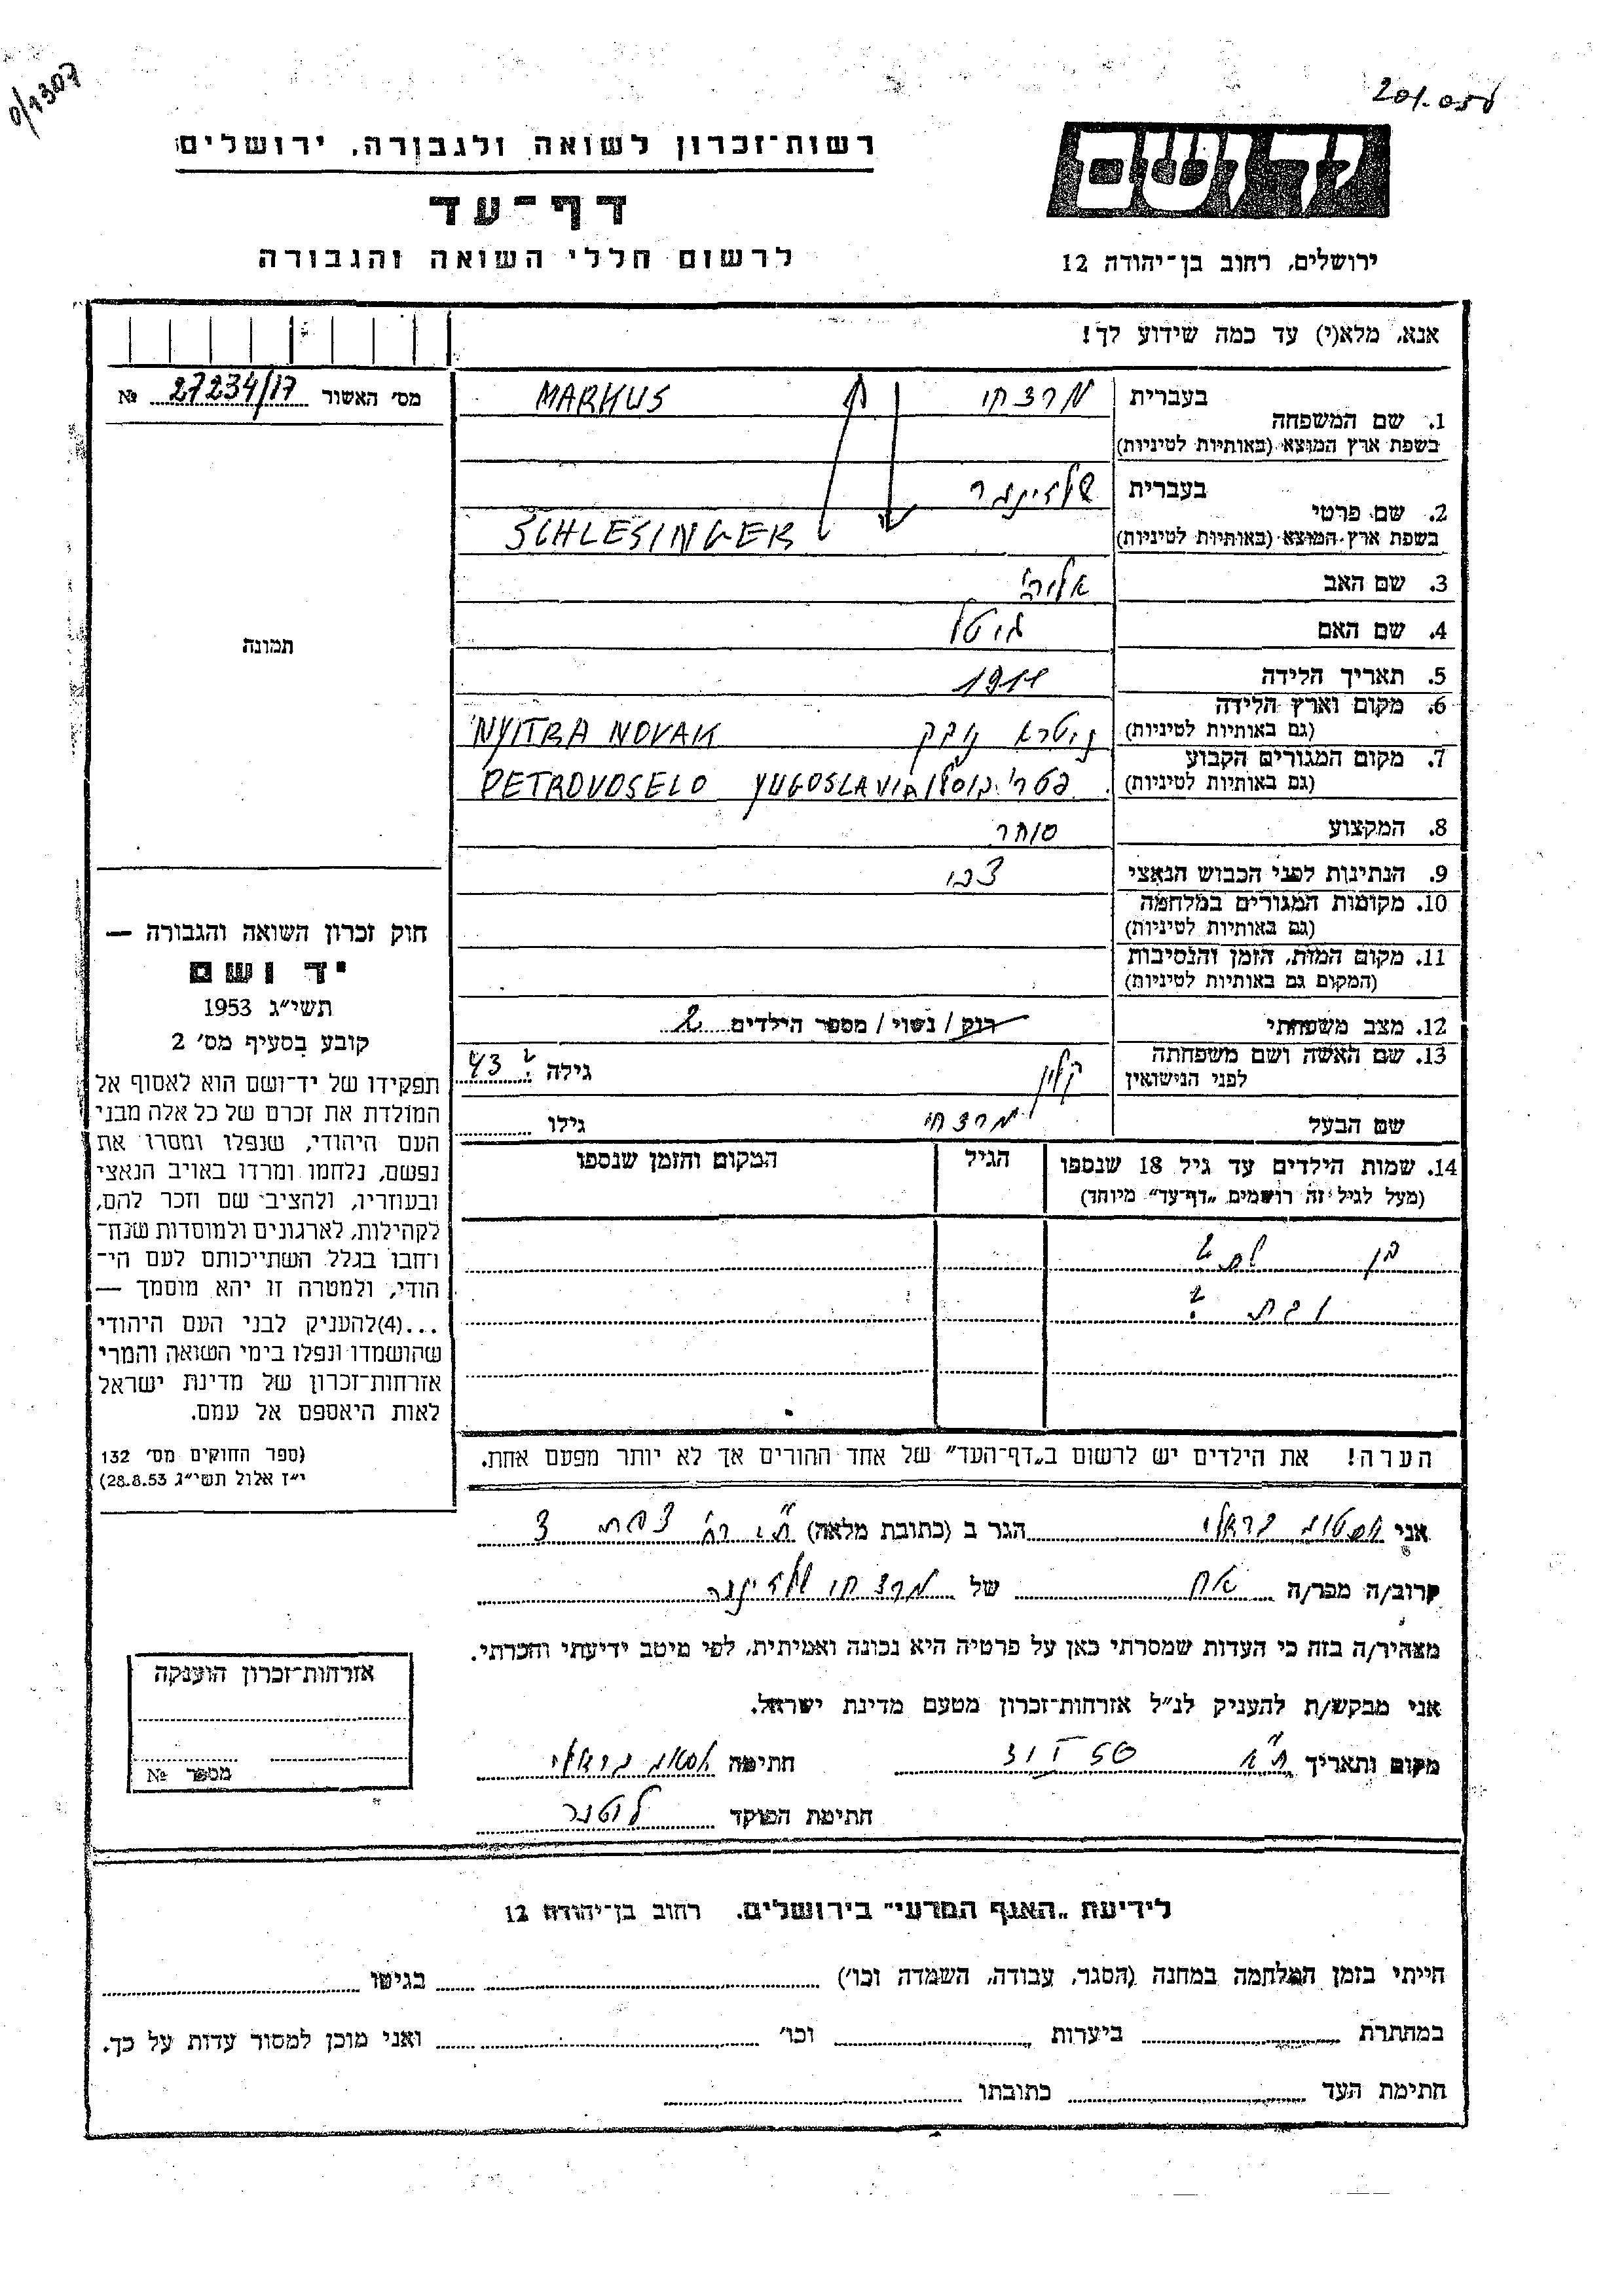 0/1307
201.050
רשות־זכרון לשואה ולגבורה, ירושלים
יד ושם
דף־עד
לרשום חללי השואה והגבורה
ירושלים, רחוב בן־יהודה 12
אנא, מלא(י) עד כמה שידוע לך!
מס׳ האשור 27234/17 №
תמונה
בעברית מרדכי MARKUS
1. שם המשפחה
בשפת ארץ המוצא (באותיות לטיניות)
בעברית שלזינגר
2. שם פרטי
בשפת ארץ המוצא (באותיות לטיניות) SCHLESINGER
3. שם האב
4. שם האם גיטל
5. תאריך הלידה 1911
6. מקום וארץ הלידה
(גם באותיות לטיניות) ניטרא נובק NYITRA NOVAK
7. מקום המגורים הקבוע
(גם באותיות לטיניות) PETROVOSELO YUGOSLAVIA
8. המקצוע סוחר
9. הנתינות לפני הכבוש הנאצי
10. מקומות המגורים במלחמה
(גם באותיות לטיניות)
11. מקום המות, הזמן והנסיבות
(המקום גם באותיות לטיניות)
12. מצב משפחתי רוק / נשוי / מספר הילדים 2
13. שם האשה ושם משפחתה
לפני הנישואין קליין גילה ? 43
שם הבעל מרדכי גילו
14. שמות הילדים עד גיל 18 שנספו
(מעל לגיל זה רושמים „דף־עד״ מיוחד)
הגיל
המקום והזמן שנספו
בן שם ?
ובת ?
הערה! את הילדים יש לרשום ב„דף־העד״ של אחד ההורים אך לא יותר מפעם אחת.
חוק זכרון השואה והגבורה —
יד ושם
תשי״ג 1953
קובע בסעיף מס׳ 2
תפקידו של יד־ושם הוא לאסוף אל
המולדת את זכרם של כל אלה מבני
העם היהודי, שנפלו ומסרו את
נפשם, נלחמו ומרדו באויב הנאצי
ובעוזריו, ולהציב שם וזכר להם,
לקהילות, לארגונים ולמוסדות שנח־
רחבו בגלל השתייכותם לעם הי־
הודי, ולמטרה זו יהא מוסמך —
...(4)להעניק לבני העם היהודי
שהושמדו ונפלו בימי השואה והמרי
אזרחות־זכרון של מדינת ישראל
לאות היאספם אל עמם.
(ספר החוקים מס׳ 132
י״ז אלול תשי״ג 28.8.53)
אני הגר ב (כתובת מלאה) צפת 3
קרוב/ה מכר/ה אח של מרדכי שלזינגר
מצהיר/ה בזה כי העדות שמסרתי כאן על פרטיה היא נכונה ואמיתית, לפי מיטב ידיעתי והכרתי.
אני מבקש/ת להעניק לנ״ל אזרחות־זכרון מטעם מדינת ישראל.
מקום ותאריך ת״א חתימה
חתימת הפוקד
אזרחות־זכרון הוענקה
מספר №
לידיעת „האגף המדעי״ בירושלים. רחוב בן־יהודה 12
הייתי בזמן המלחמה במחנה (הסגר, עבודה, השמדה וכו׳) בגיטו
במחתרת ביערות וכו׳ ואני מוכן למסור עדות על כך.
חתימת העד כתובתו